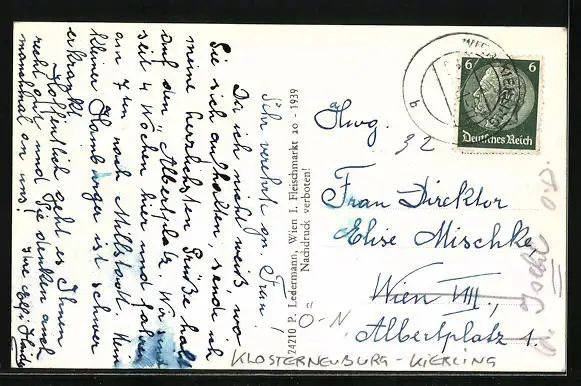 Sehr verehrte gn. Frau!
Da ich nicht weiß, wo
Sie sich aufhalten, sende ich
meine herzlichsten Grüße halt
auf den Albertplatz. Wir sind
seit 4 Wochen hier und fahren
am 7. nach Millstatt. Mein
kleiner Hamburger ist schwer
erkrankt.
Hoffentlich geht es Ihnen
recht gut und Sie denken auch
manchmal an uns! Ihre
24210 P. Ledermann, Wien I. Fleischmarkt 20 - 1939
Nachdruck verboten!
6 6
Deutsches Reich
WIEN
b
Hwg.
32
Frau Direktor
Elise Mischke
Wien VIII.,
Albertplatz 1.
O-N
KLOSTERNEUBURG - KIERLING